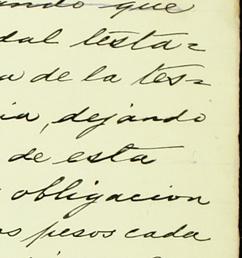 ando que
dal testa=
a de la tes=
ia, dejando
de esta
obligacion
os pesos cada